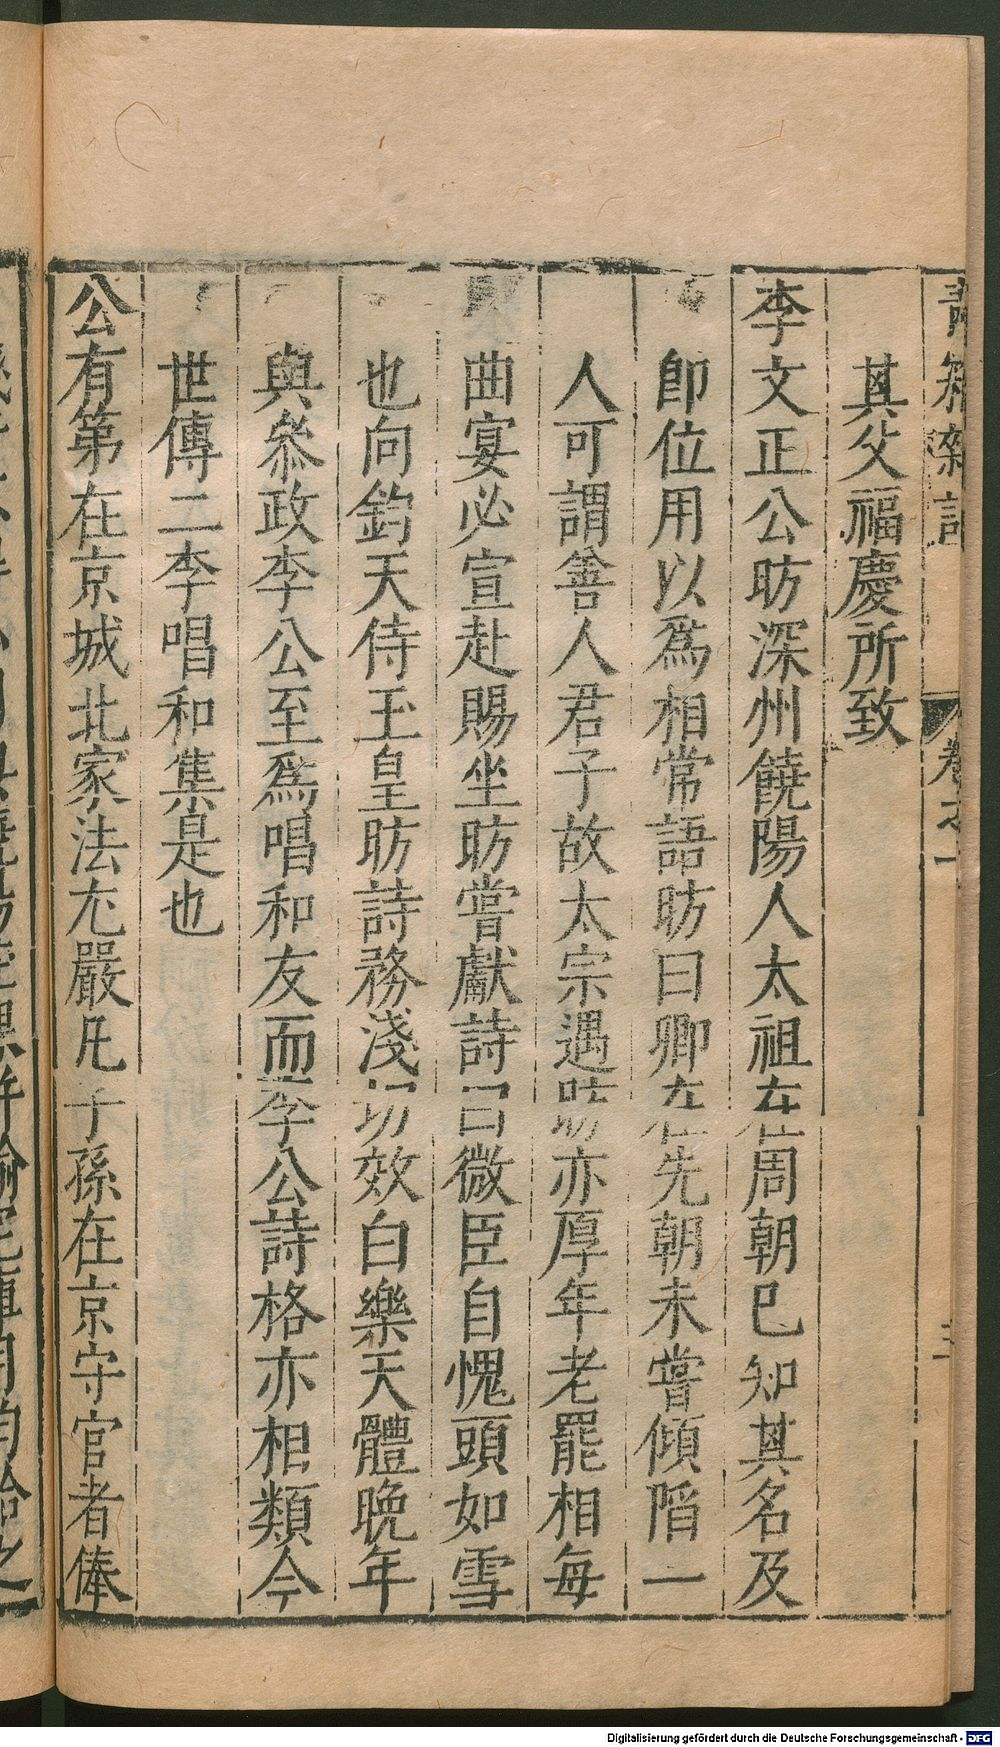 其父福慶所致
李文正公昉深州饒陽人太祖在周朝已知其名及
即位用以為相常語昉曰卿在先朝未嘗傾陷一
人可謂善人君子故太宗遇昉亦厚年老罷相每
曲宴必宣赴賜坐昉嘗獻詩曰微臣自愧頭如雪
也向鈞天侍玉皇昉詩務淺切效白樂天體晚年
與叅政李公至爲唱和友而李公詩格亦相類今
世傳二李唱和集是也
公有第在京城北家法尤嚴凡子孫在京守官者俸
Digitalisierung gefördert durch die Deutsche Forschungsgemeinschaft - DFG